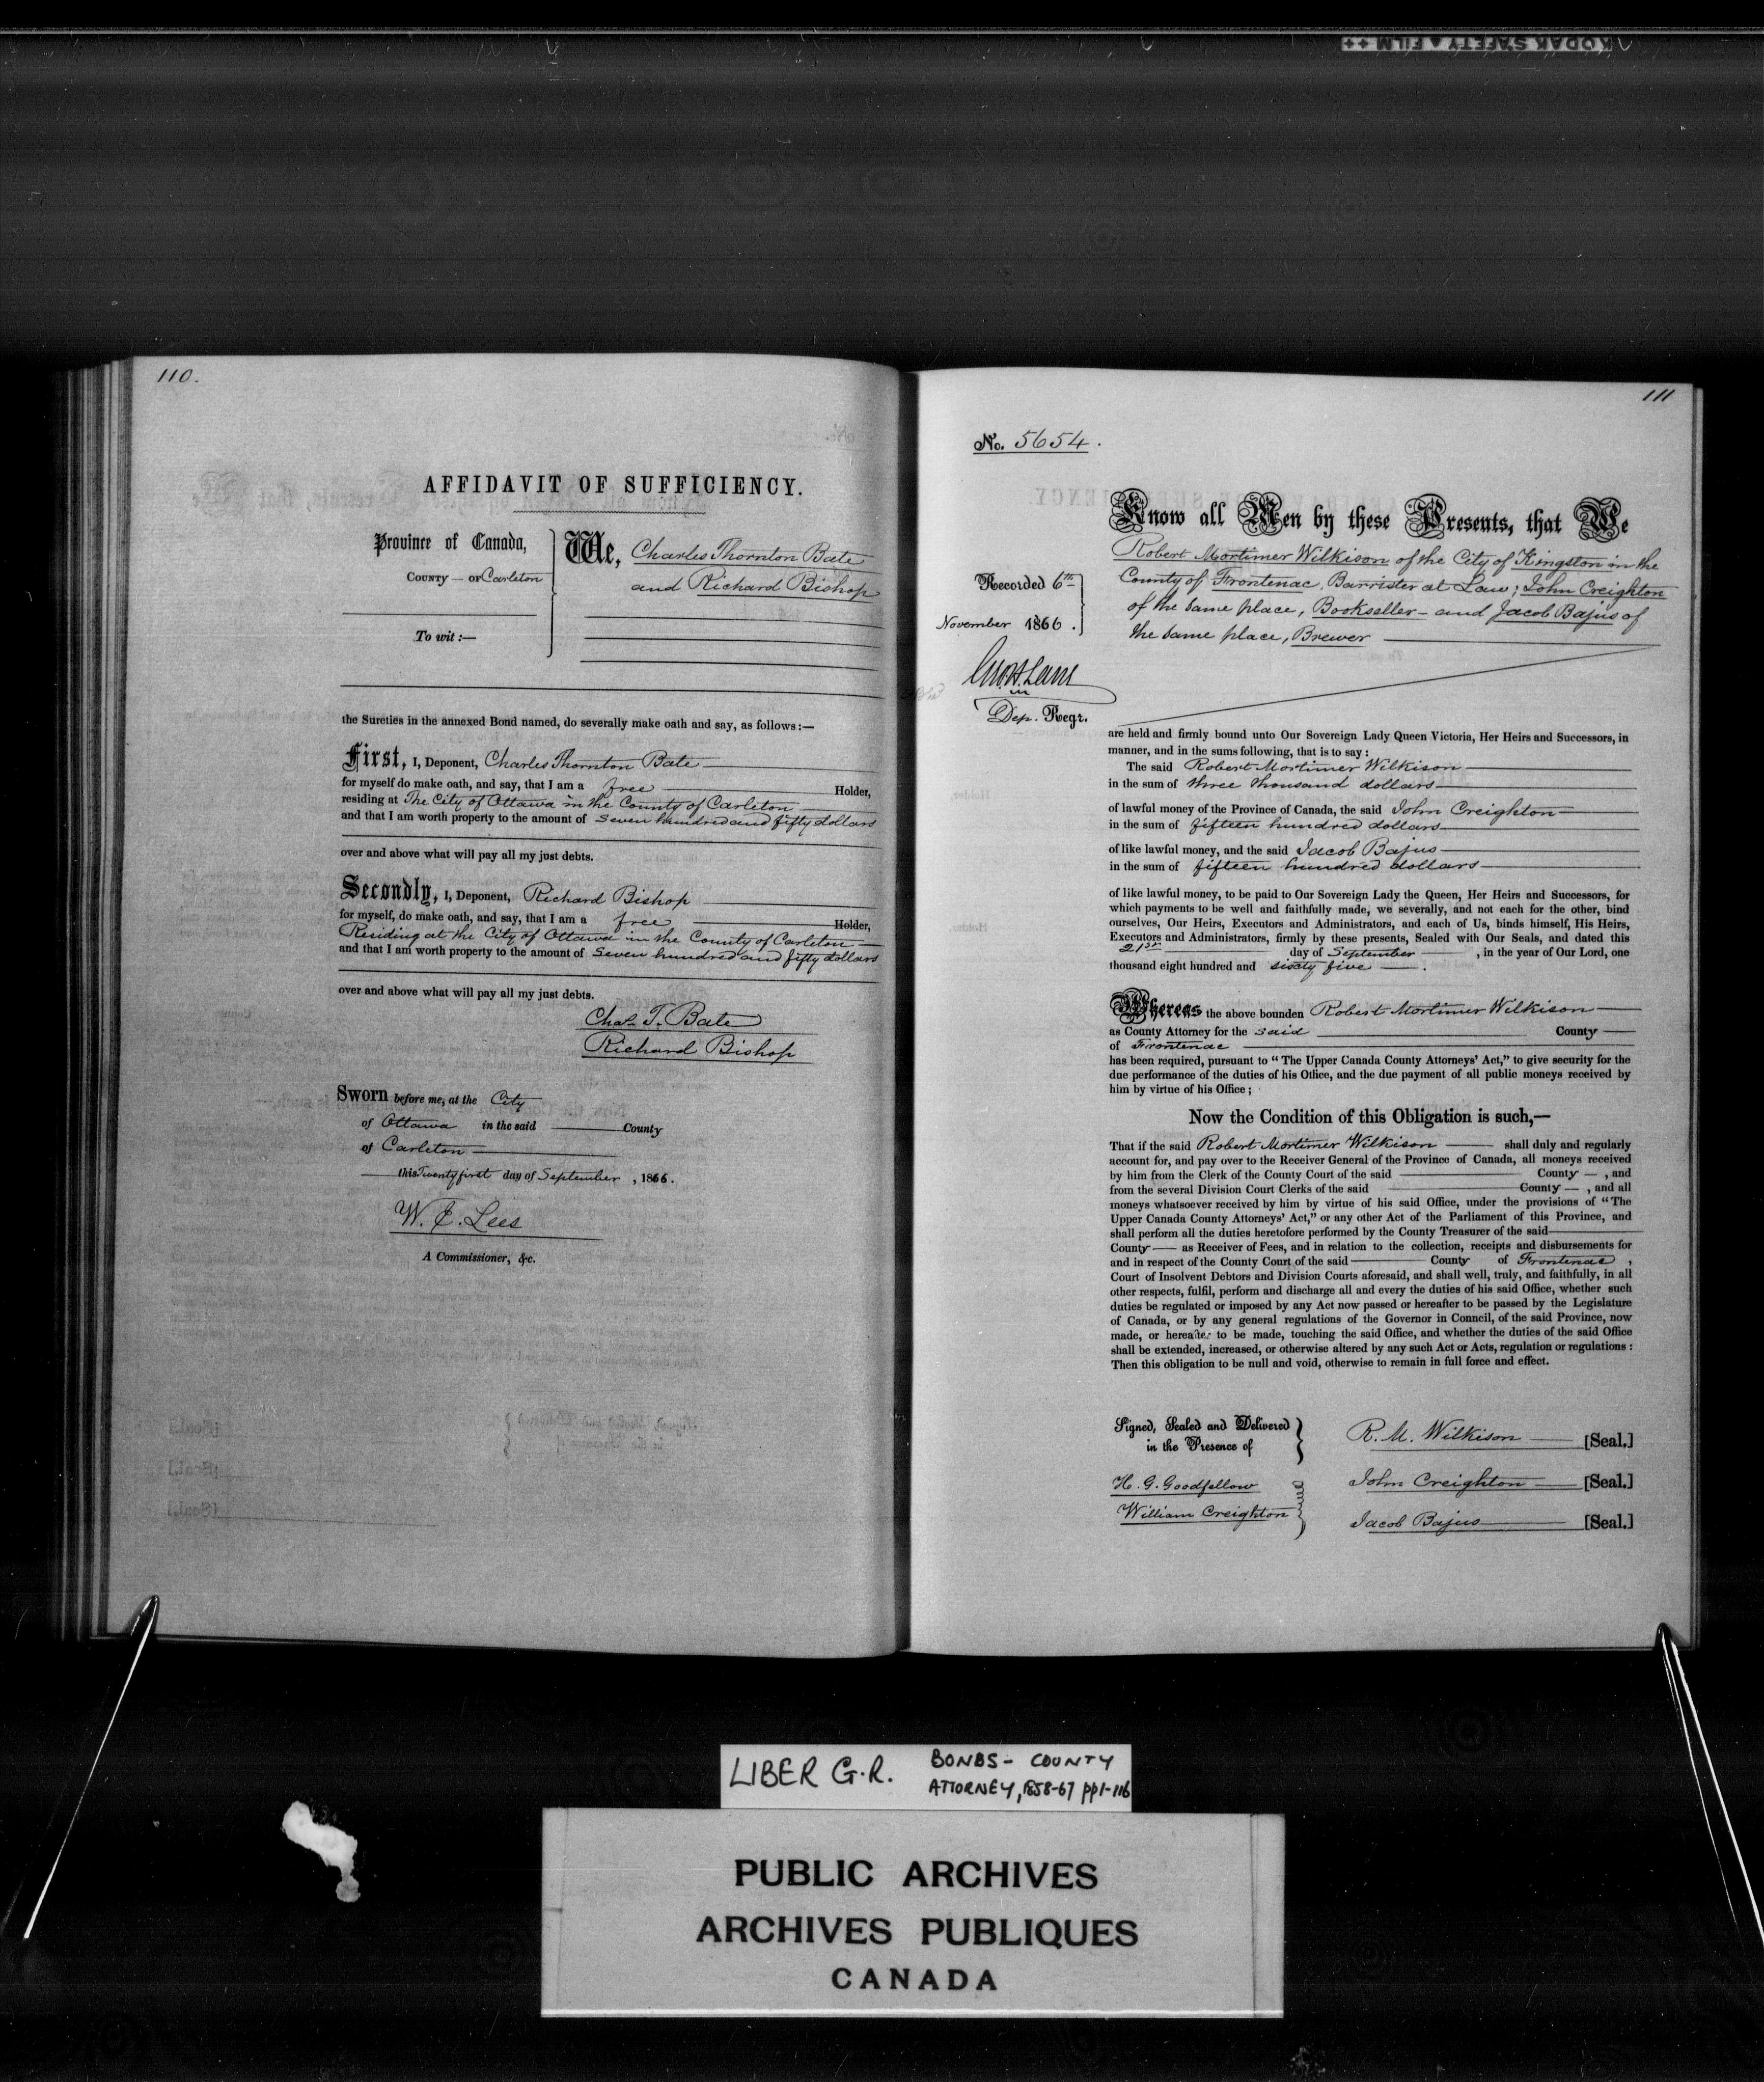 KODAK SAFETY FILM
110.
AFFIDAVIT OF SUFFICIENCY.
Province of Canada,
COUNTY — OF Carleton
To wit:—
We, Charles Thornton Bate
and Richard Bishop
the Sureties in the annexed Bond named, do severally make oath and say, as follows:—
First, I, Deponent, Charles Thornton Bate
for myself do make oath, and say, that I am a free Holder,
residing at The City of Ottawa in the County of Carleton
and that I am worth property to the amount of Seven hundred and fifty dollars
over and above what will pay all my just debts.
Secondly, I, Deponent, Richard Bishop
for myself, do make oath, and say, that I am a free Holder,
Residing at the City of Ottawa in the County of Carleton
and that I am worth property to the amount of Seven hundred and fifty dollars
over and above what will pay all my just debts.
Chas. T. Bate
Richard Bishop
Sworn before me, at the City
of Ottawa in the said County
of Carleton
this Twenty first day of September, 1866.
W. Lees
A Commissioner, &c.
111
No. 5654.
Know all Men by these Presents, that We
Robert Mortimer Wilkison of the City of Kingston in the
County of Frontenac, Barrister at Law; John Creighton
of the same place, Bookseller - and Jacob Bajus of
the same place, Brewer
Recorded 6th
November 1866.
Dep. Regr.
are held and firmly bound unto Our Sovereign Lady Queen Victoria, Her Heirs and Successors, in
manner, and in the sums following, that is to say:
The said Robert Mortimer Wilkison
in the sum of three thousand dollars
of lawful money of the Province of Canada, the said John Creighton
in the sum of fifteen hundred dollars
of like lawful money, and the said Jacob Bajus
in the sum of fifteen hundred dollars
of like lawful money, to be paid to Our Sovereign Lady the Queen, Her Heirs and Successors, for
which payments to be well and faithfully made, we severally, and not each for the other, bind
ourselves, Our Heirs, Executors and Administrators, and each of Us, binds himself, His Heirs,
Executors and Administrators, firmly by these presents, Sealed with Our Seals, and dated this
21st day of September, in the year of Our Lord, one
thousand eight hundred and sixty five.
Whereas the above bounden Robert Mortimer Wilkison
as County Attorney for the said County
of Frontenac
has been required, pursuant to "The Upper Canada County Attorneys' Act," to give security for the
due performance of the duties of his Office, and the due payment of all public moneys received by
him by virtue of his Office;
Now the Condition of this Obligation is such,—
That if the said Robert Mortimer Wilkison shall duly and regularly
account for, and pay over to the Receiver General of the Province of Canada, all moneys received
by him from the Clerk of the County Court of the said County —, and
from the several Division Court Clerks of the said County —, and all
moneys whatsoever received by him by virtue of his said Office, under the provisions of "The
Upper Canada County Attorneys' Act," or any other Act of the Parliament of this Province, and
shall perform all the duties heretofore performed by the County Treasurer of the said
County — as Receiver of Fees, and in relation to the collection, receipts and disbursements for
and in respect of the County Court of the said County of Frontenac,
Court of Insolvent Debtors and Division Courts aforesaid, and shall well, truly, and faithfully, in all
other respects, fulfil, perform and discharge all and every the duties of his said Office, whether such
duties be regulated or imposed by any Act now passed or hereafter to be passed by the Legislature
of Canada, or by any general regulations of the Governor in Council, of the said Province, now
made, or hereafter to be made, touching the said Office, and whether the duties of the said Office
shall be extended, increased, or otherwise altered by any such Act or Acts, regulation or regulations:
Then this obligation to be null and void, otherwise to remain in full force and effect.
Signed, Sealed and Delivered
in the Presence of
H. G. Goodfellow
William Creighton
R. M. Wilkison [Seal.]
John Creighton [Seal.]
Jacob Bajus [Seal.]
LIBER G.R. BONDS - COUNTY
ATTORNEY, 1858-67 pp1-116
PUBLIC ARCHIVES
ARCHIVES PUBLIQUES
CANADA